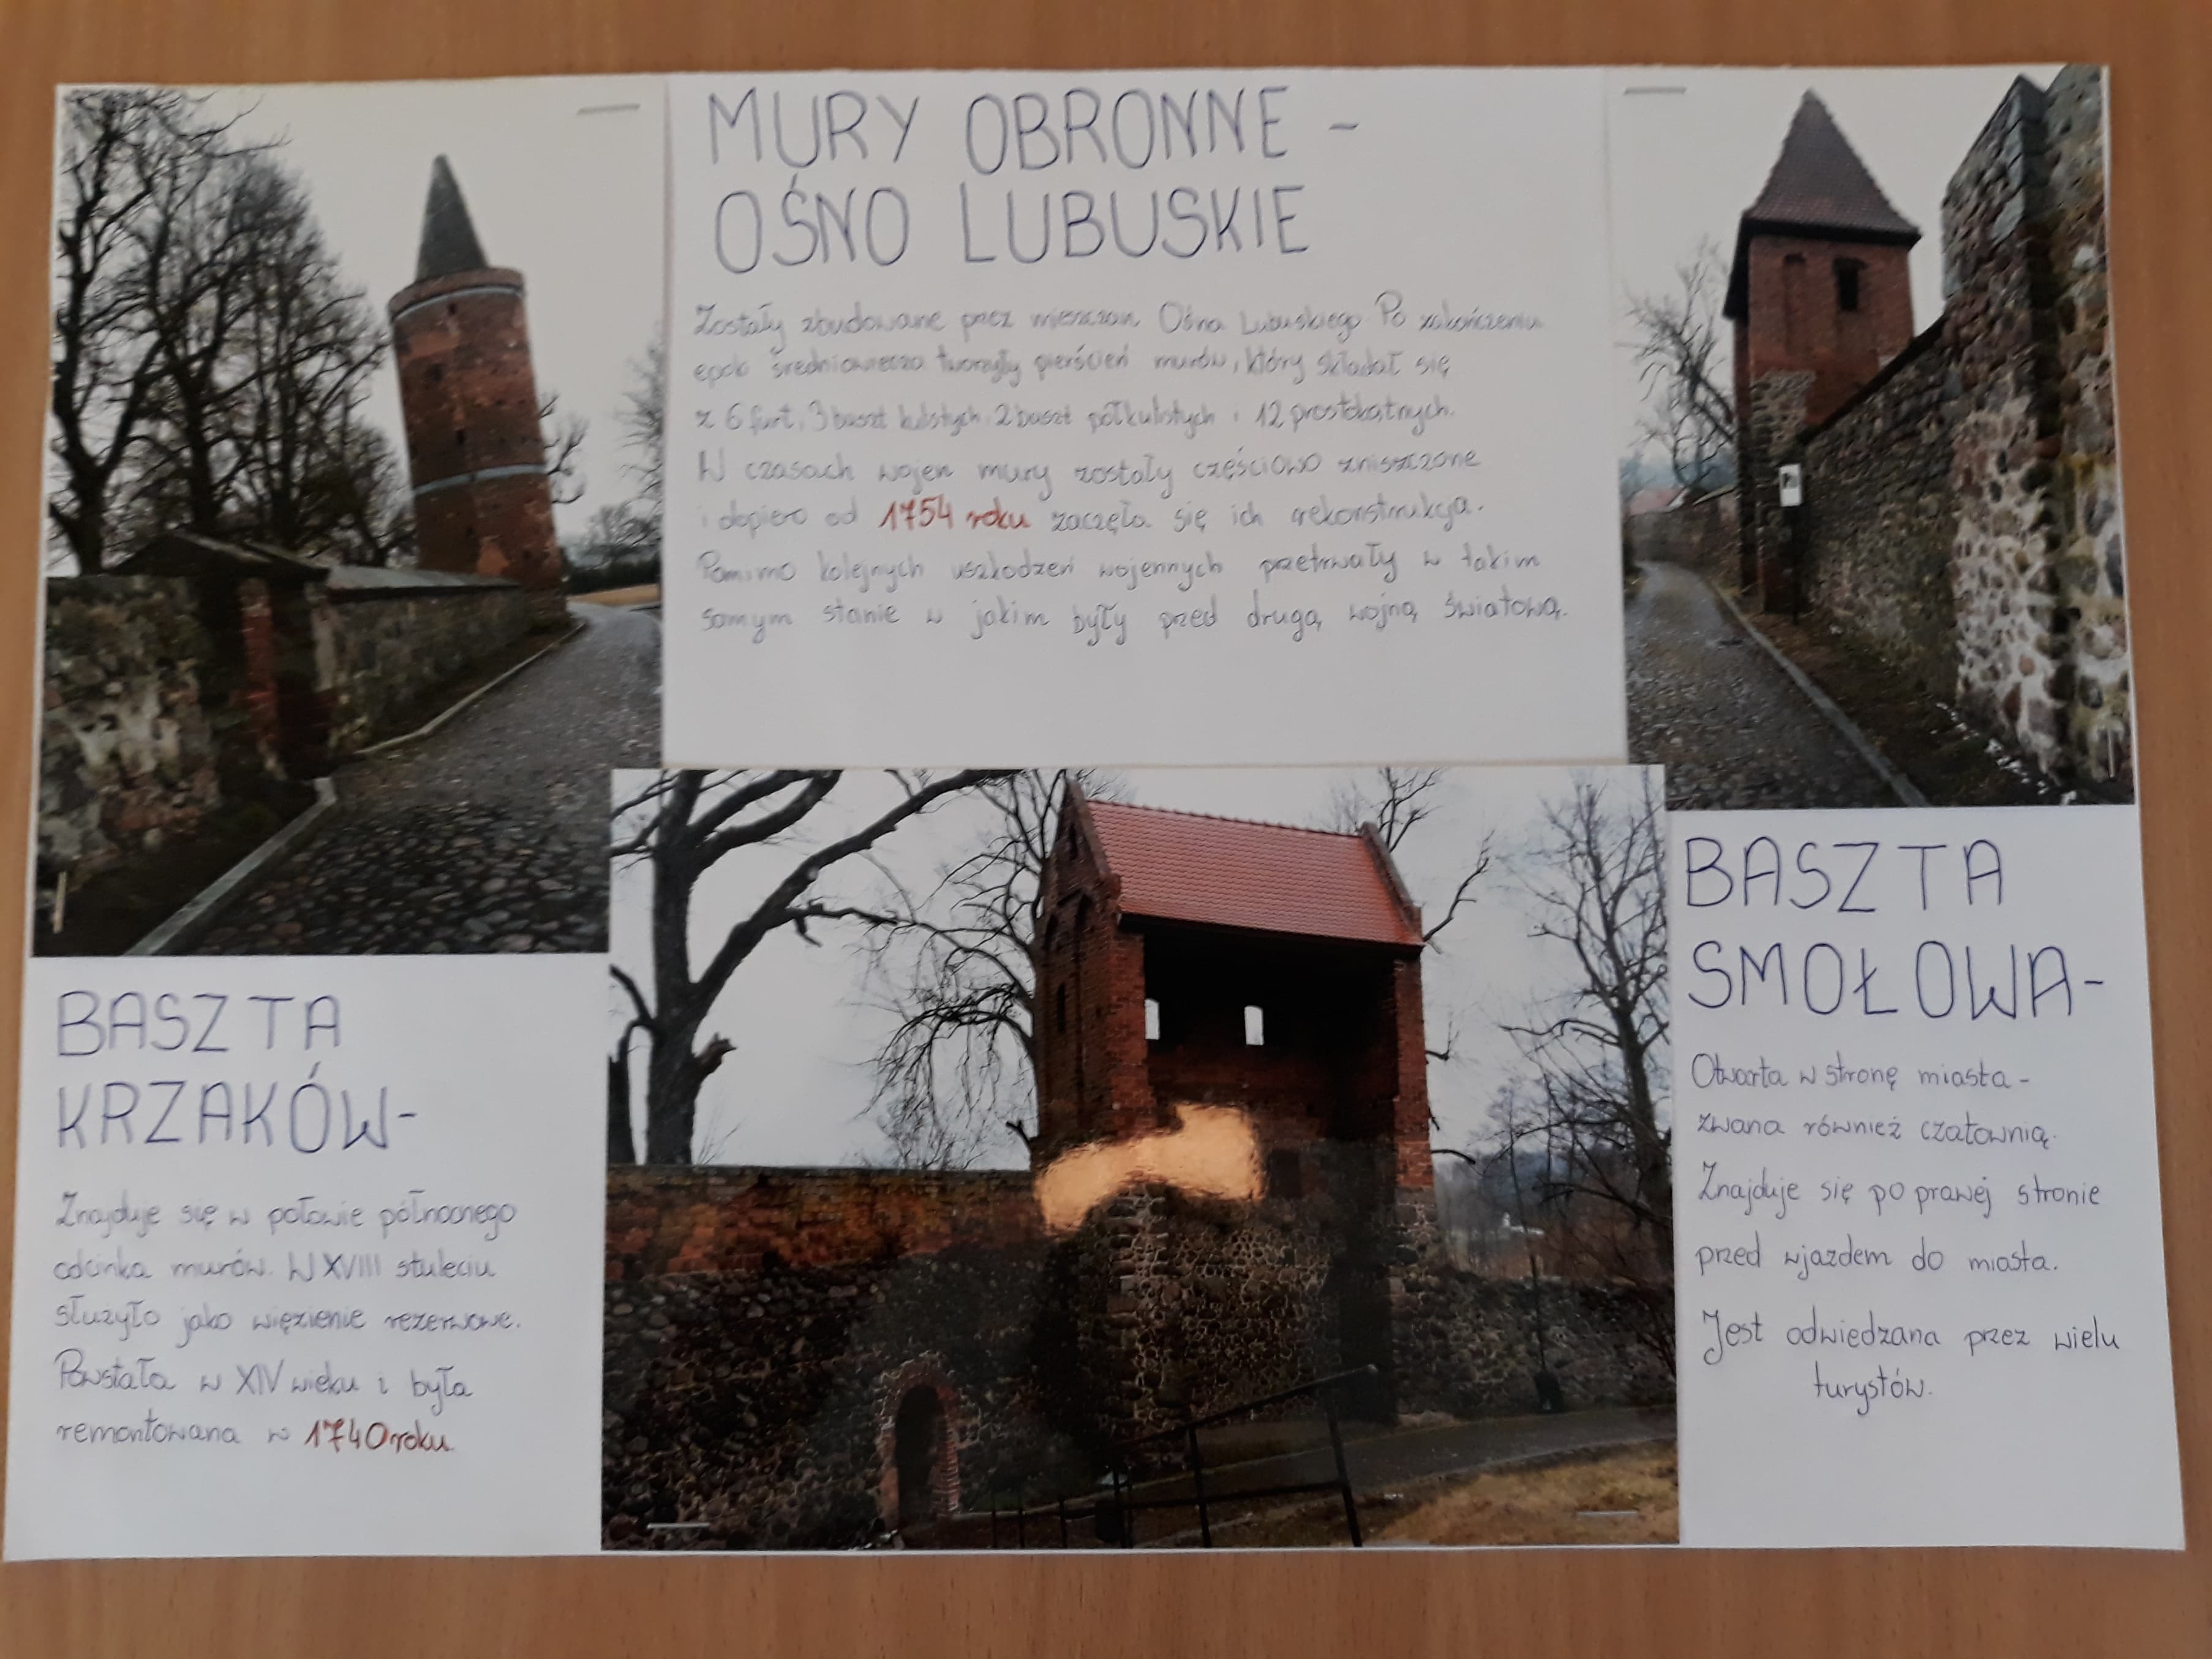 MURY OBRONNE -
OŚNO LUBUSKIE
Zostały zbudowane przez mieszczan Ośna Lubuskiego Po zakończeniu
epoki średniowiecza tworzyły pierścień murów, który składał się
z 6 furt, 3 baszt kulistych, 2 baszt półkulistych i 12 prostokątnych.
W czasach wojen mury zostały częściowo zniszczone
i dopiero od 1754 roku zaczęła się ich rekonstrukcja.
Pomimo kolejnych uszkodzeń wojennych przetrwały w takim
samym stanie w jakim były przed drugą wojną światową.
BASZTA
KRZAKÓW-
Znajduje się w połowie północnego
odcinka murów. W XVIII stuleciu
służyło jako więzienie rezerwowe.
Powstała w XIV wieku i była
remontowana w 1740 roku.
BASZTA
SMOŁOWA-
Otwarta w stronę miasta -
zwana również czatownią.
Znajduje się po prawej stronie
przed wjazdem do miasta.
Jest odwiedzana przez wielu
turystów.